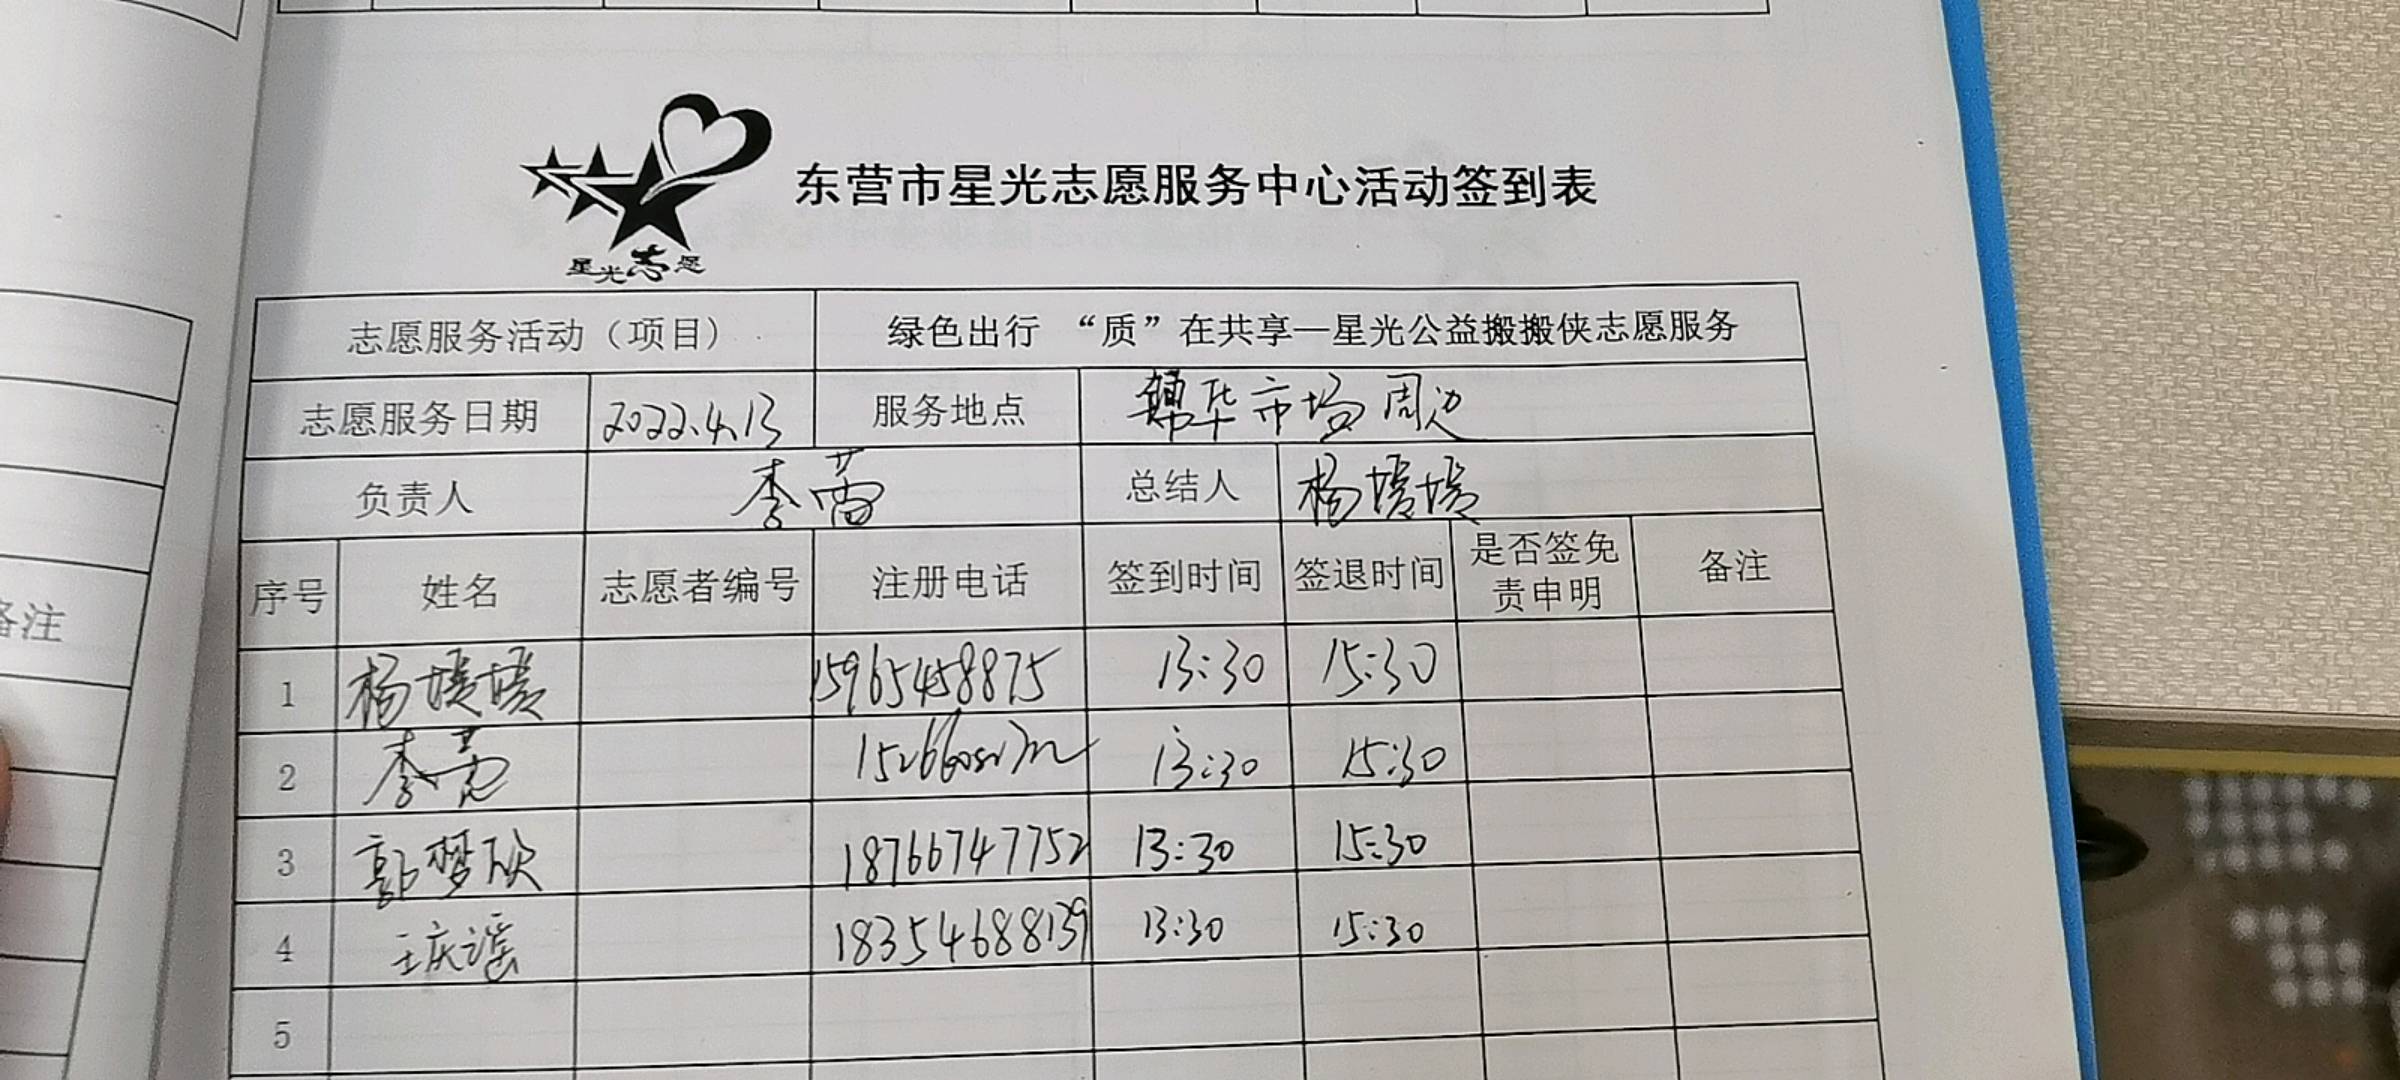 东营市星光志愿服务中心活动签到表
星光志愿
志愿服务活动（项目） 绿色出行 “质”在共享—星光公益搬搬侠志愿服务
志愿服务日期 2022.4.13 服务地点 华市场周边
负责人 李 总结人 杨媛媛
序号 姓名 志愿者编号 注册电话 签到时间 签退时间 是否签免责申明 备注
1 杨媛媛 15965458875 13:30 15:30
2 李 13:30 15:30
3 郭梦欣 18766747752 13:30 15:30
4 王庆谣 18354688139 13:30 15:30
5
备注